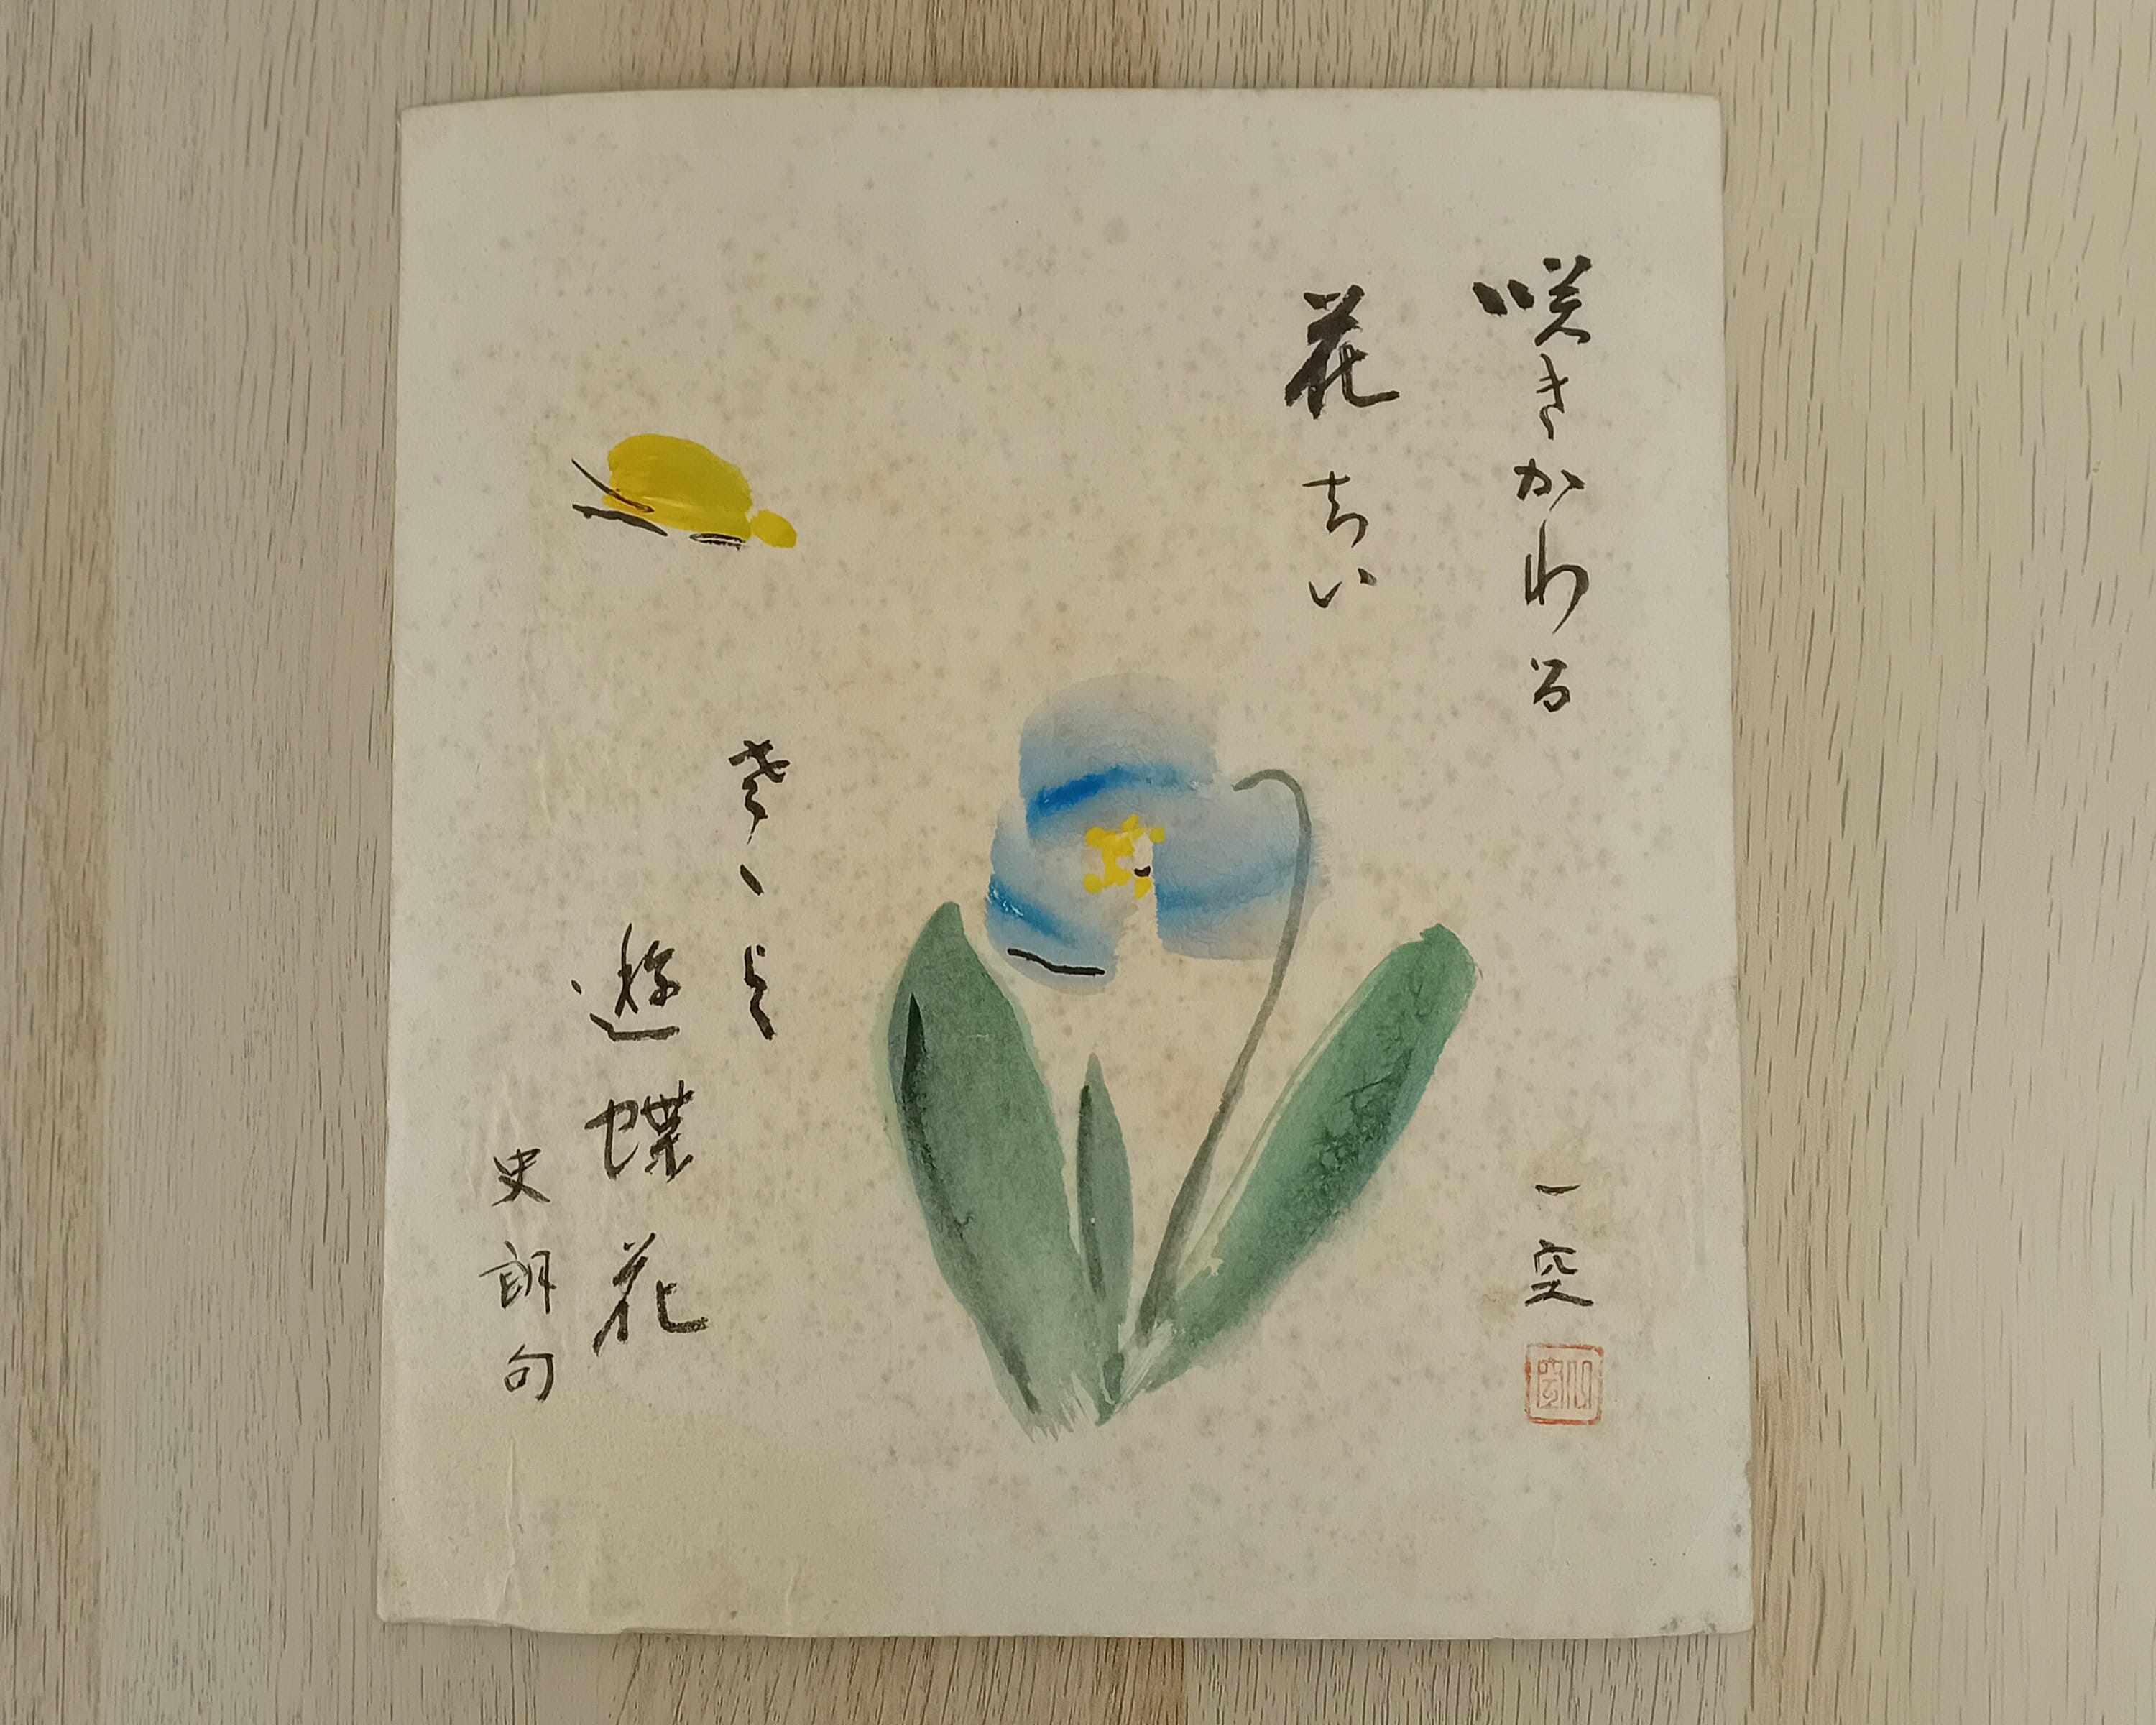 咲きかわる
花ちい
さゝよ
遊蝶花
史朗句
一空